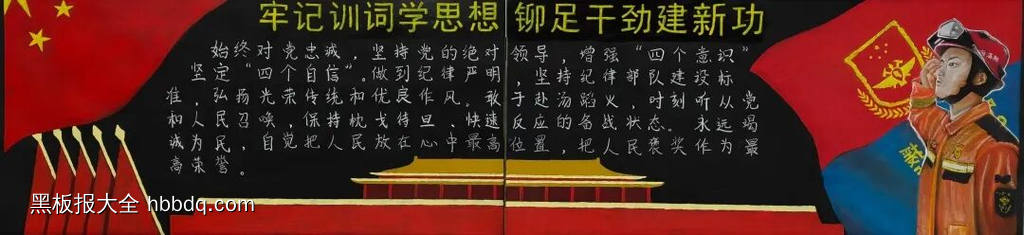 牢记训词学思想 铆足干劲建新功
始终对党忠诚，坚持党的绝对领导，增强“四个意识”
坚定“四个自信”。做到纪律严明，坚持纪律部队建设标
准，弘扬光荣传统和优良作风。敢于赴汤蹈火，时刻听从党
和人民召唤，保持枕戈待旦、快速反应的备战状态。永远竭
诚为民，自觉把人民放在心中最高位置，把人民褒奖作为最
高荣誉。
黑板报大全 hbbdq.com